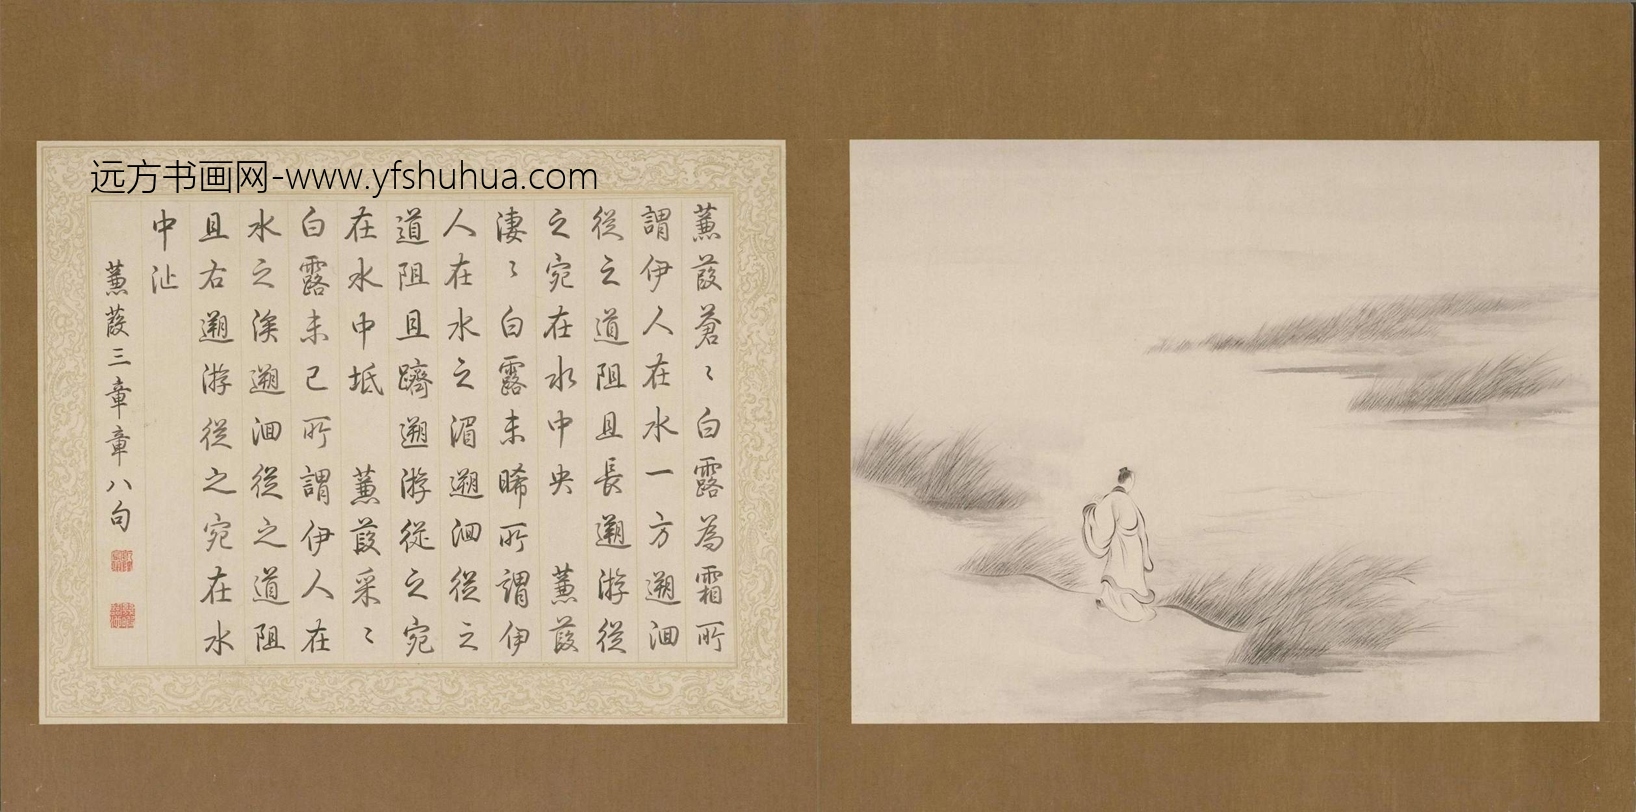 远方书画网-www.yfshuhua.com
蒹葭蒼〻白露為霜所
謂伊人在水一方遡洄
從之道阻且長遡游從
之宛在水中央　蒹葭
淒〻白露未晞所謂伊
人在水之湄遡洄從之
道阻且躋遡游從之宛
在水中坻　蒹葭采〻
白露未已所謂伊人在
水之涘遡洄從之道阻
且右遡游從之宛在水
中沚
蒹葭三章章八句